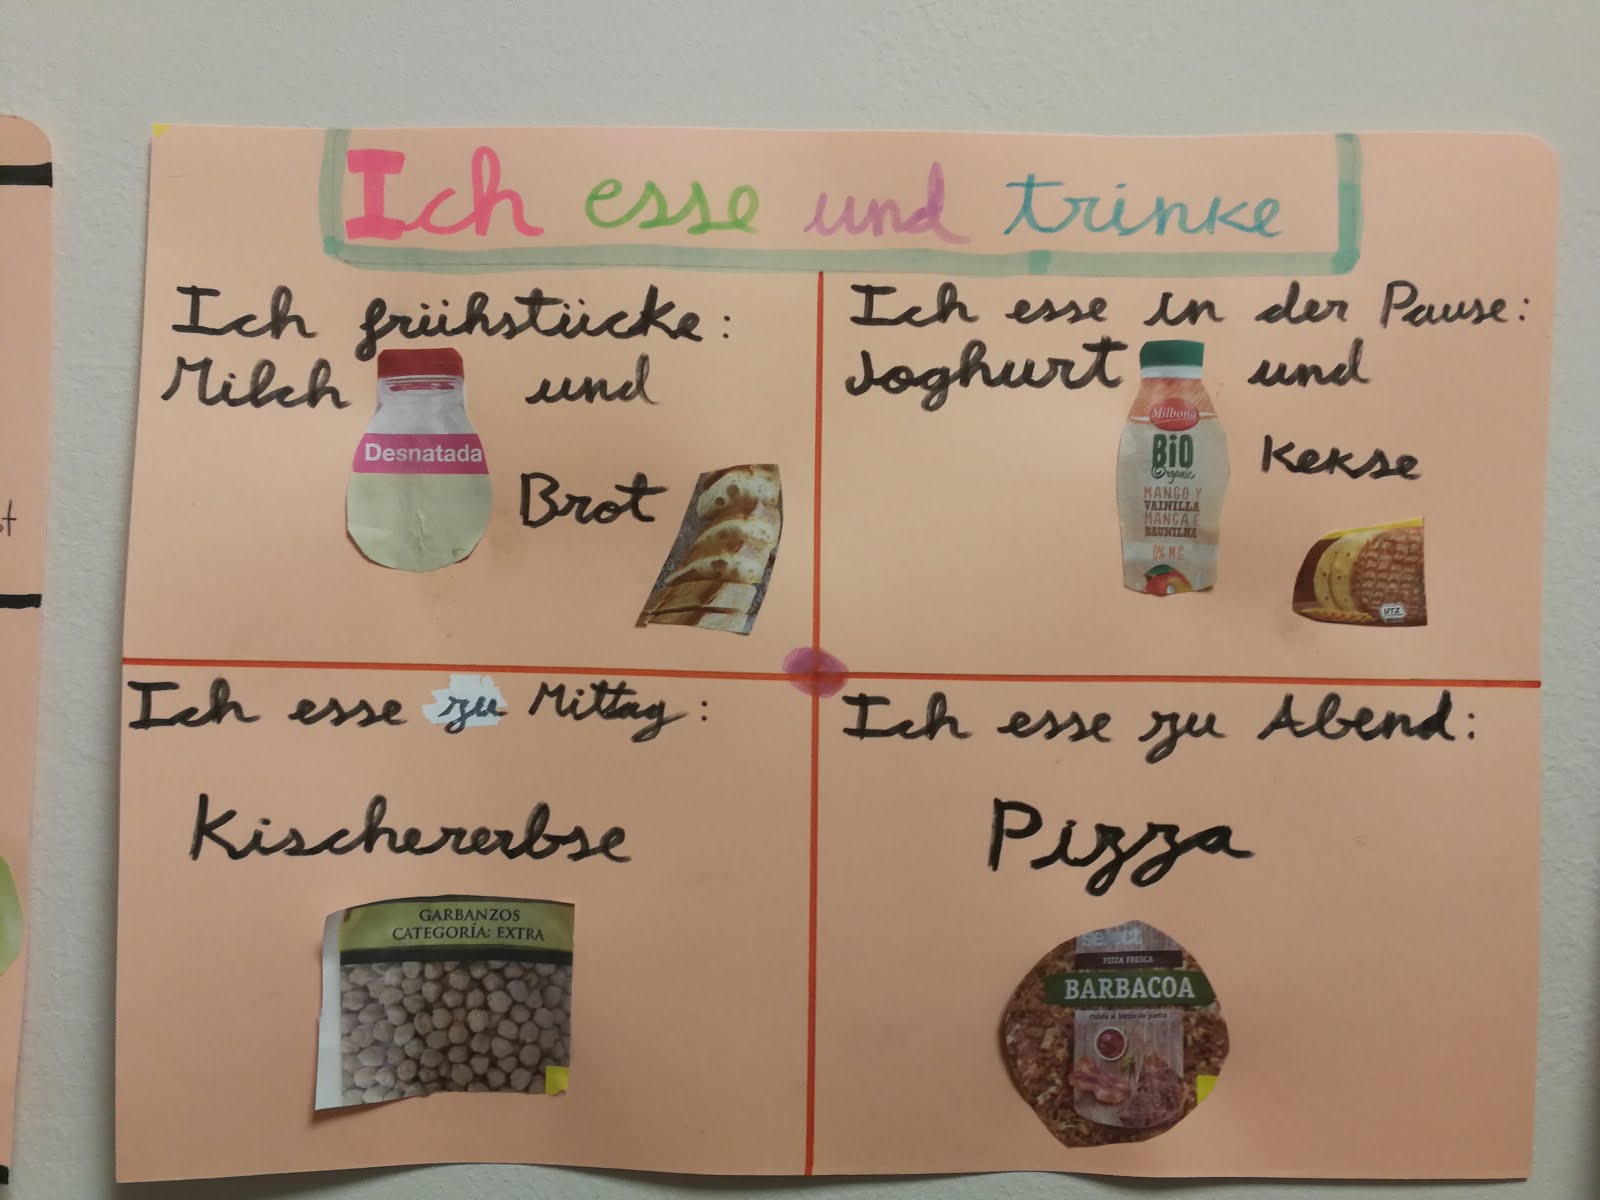 Ich esse und trinke
Ich frühstücke:
Milch und
Brot
Desnatada
Ich esse in der Pause:
Joghurt und
Kekse
Milbona
BiO
Organic
MANGO Y
VAINILLA
MANGA E
BAUNILHA
0% M.G.
UTZ
Ich esse zu Mittag:
Kischererbse
GARBANZOS
CATEGORÍA: EXTRA
Ich esse zu Abend:
Pizza
select
PIZZA FRESCA
BARBACOA